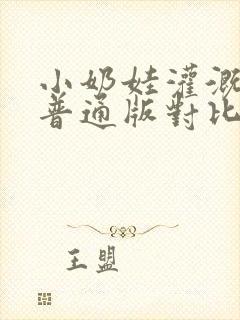 小奶娃灌溉
普通版對比
王盟